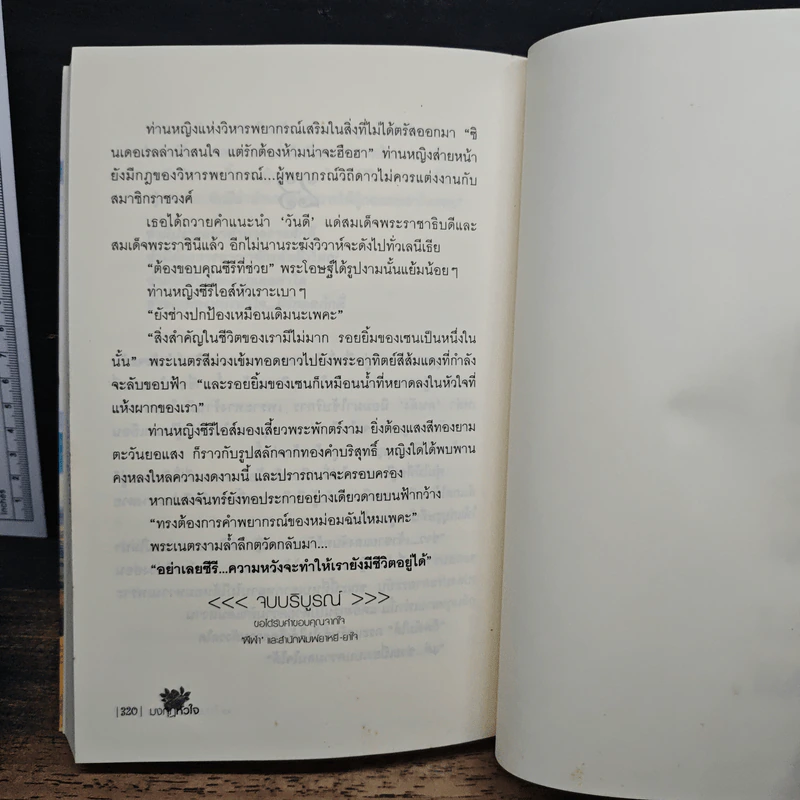 ท่านหญิงแห่งวิหารพยากรณ์เสริมในสิ่งที่ไม่ได้ตรัสออกมา “ซิ
นเดอเรลล่าน่าสนใจ แต่รักต้องห้ามน่าจะฮือฮา” ท่านหญิงส่ายหน้า
ยังมีกฎของวิหารพยากรณ์...ผู้พยากรณ์วิถีดาวไม่ควรแต่งงานกับ
สมาชิกราชวงศ์
เธอได้ถวายคำแนะนำ ‘วันดี’ แด่สมเด็จพระราชาธิบดีและ
สมเด็จพระราชินีแล้ว อีกไม่นานระฆังวิวาห์จะดังไปทั่วเลนีเธีย
“ต้องขอบคุณซีรีที่ช่วย” พระโอษฐ์ได้รูปงามนั้นแย้มน้อยๆ
ท่านหญิงซีรีไอส์หัวเราะเบาๆ
“ยังช่างปกป้องเหมือนเดิมนะเพคะ”
“สิ่งสำคัญในชีวิตของเรามีไม่มาก รอยยิ้มของเซนเป็นหนึ่งใน
นั้น” พระเนตรสีม่วงเข้มทอดยาวไปยังพระอาทิตย์สีส้มแดงที่กำลัง
จะลับขอบฟ้า “และรอยยิ้มของเซนก็เหมือนน้ำที่หยาดลงในหัวใจที่
แห้งผากของเรา”
ท่านหญิงซีรีไอส์มองเสี้ยวพระพักตร์งาม ยิ่งต้องแสงสีทองยาม
ตะวันยอแสง ก็ราวกับรูปสลักจากทองคำบริสุทธิ์ หญิงใดได้พบพาน
คงหลงใหลความงดงามนี้ และปรารถนาจะครอบครอง
หากแสงจันทร์ยังทอประกายอย่างเดียวดายบนฟ้ากว้าง
“ทรงต้องการคำพยากรณ์ของหม่อมฉันไหมเพคะ”
พระเนตรงามล้ำลึกตวัดกลับมา...
“อย่าเลยซีรี...ความหวังจะทำให้เรายังมีชีวิตอยู่ได้”
<<< จบบริบูรณ์ >>>
ขอได้รับคำขอบคุณจากใจ
‘ฬีฬา’ และสำนักพิมพ์ยาหยี-ยาใจ
|320| มงกุฎหัวใจ
inches